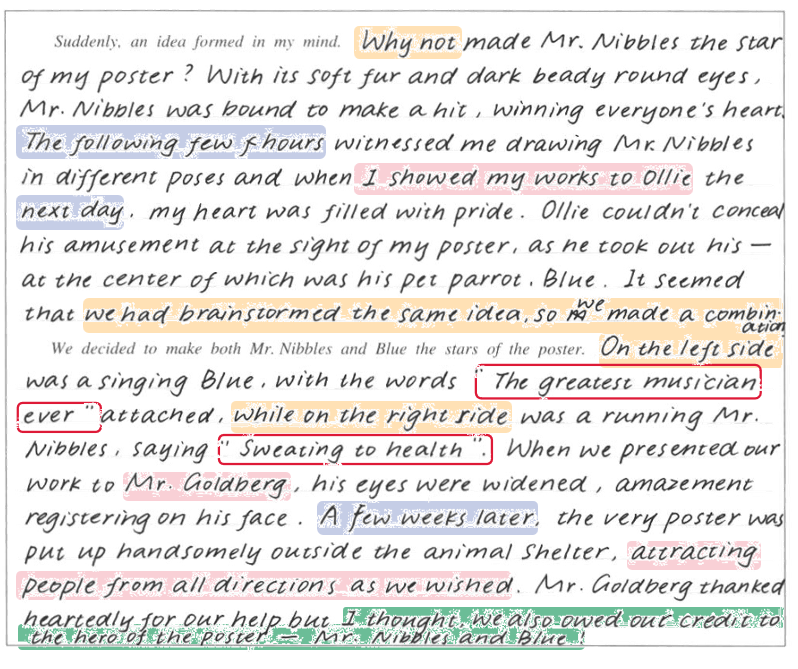 Suddenly, an idea formed in my mind. Why not made Mr. Nibbles the star
of my poster? With its soft fur and dark beady round eyes,
Mr. Nibbles was bound to make a hit, winning everyone's heart.
The following few hours witnessed me drawing Mr. Nibbles
in different poses and when I showed my works to Ollie the
next day, my heart was filled with pride. Ollie couldn't conceal
his amusement at the sight of my poster, as he took out his —
at the center of which was his pet parrot, Blue. It seemed
that we had brainstormed the same idea, so we made a combination
We decided to make both Mr. Nibbles and Blue the stars of the poster. On the left side
was a singing Blue, with the words "The greatest musician
ever" attached, while on the right side was a running Mr.
Nibbles, saying "Sweating to health". When we presented our
work to Mr. Goldberg, his eyes were widened, amazement
registering on his face. A few weeks later, the very poster was
put up handsomely outside the animal shelter, attracting
people from all directions as we wished. Mr. Goldberg thanked
heartedly for our help but I thought, we also owed our credit to
the hero of the poster — Mr. Nibbles and Blue!